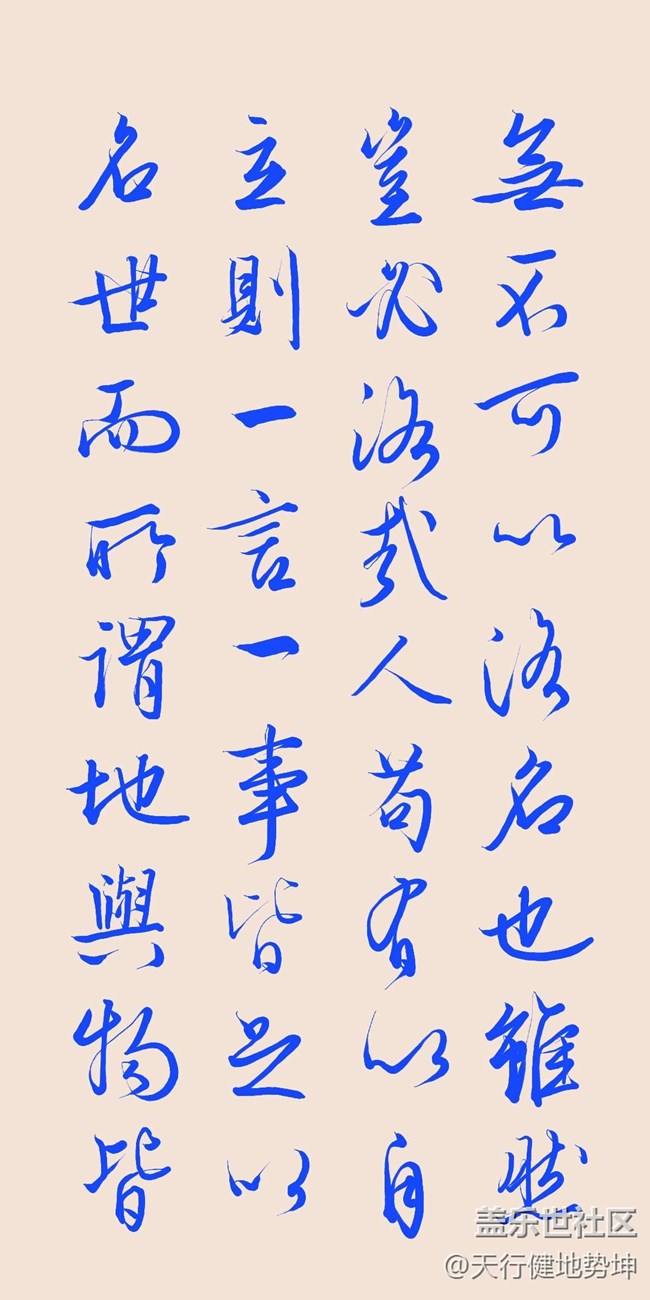 無不可以洛名也雖然
豈必洛哉人苟有以自
立則一言一事皆足以
名世而所謂地與物皆
盖乐世社区
@天行健地势坤